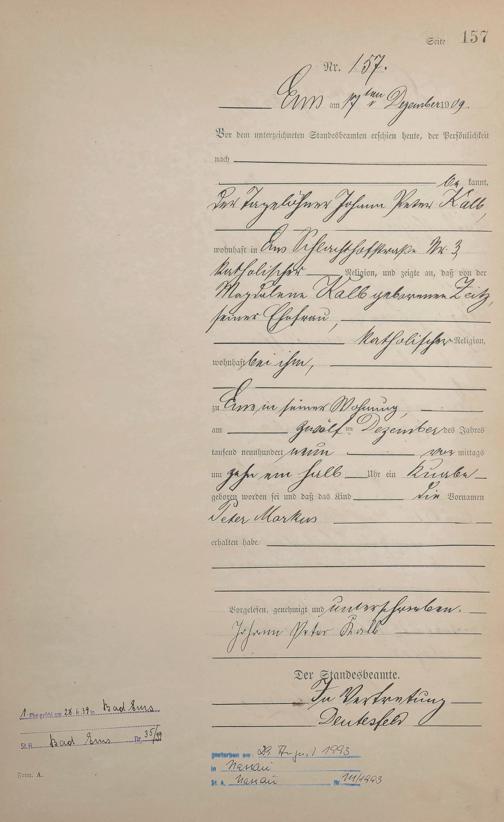 Seite 157
Nr. 157.
Ems am 17ten Dezember 1909.
Vor dem unterzeichneten Standesbeamten erschien heute, der Persönlichkeit
nach
be kannt,
der Tagelöhner Johann Peter Kalb,
wohnhaft in Ems Schlachthofstraße Nr. 3,
katholischer Religion, und zeigte an, daß von der
Magdalene Kalb geborenen Zeitz,
seiner Ehefrau,
katholischer Religion,
wohnhaft bei ihm,
zu Ems, in seiner Wohnung,
am zwölften Dezember des Jahres
tausend neunhundert neun vor mittags
um zehn ein halb Uhr ein Knabe
geboren worden sei und daß das Kind die Vornamen
Peter Markus
erhalten habe
Vorgelesen, genehmigt und unterschrieben.
Johann Peter Kalb
Der Standesbeamte.
In Vertretung
1. Eheschl. am 28.6.39 in Bad Ems
St.A. Bad Ems Nr. 35/39
Form. A.
gestorben am 29. August 1993
in Nassau
St. A. Nassau Nr. 111/1993